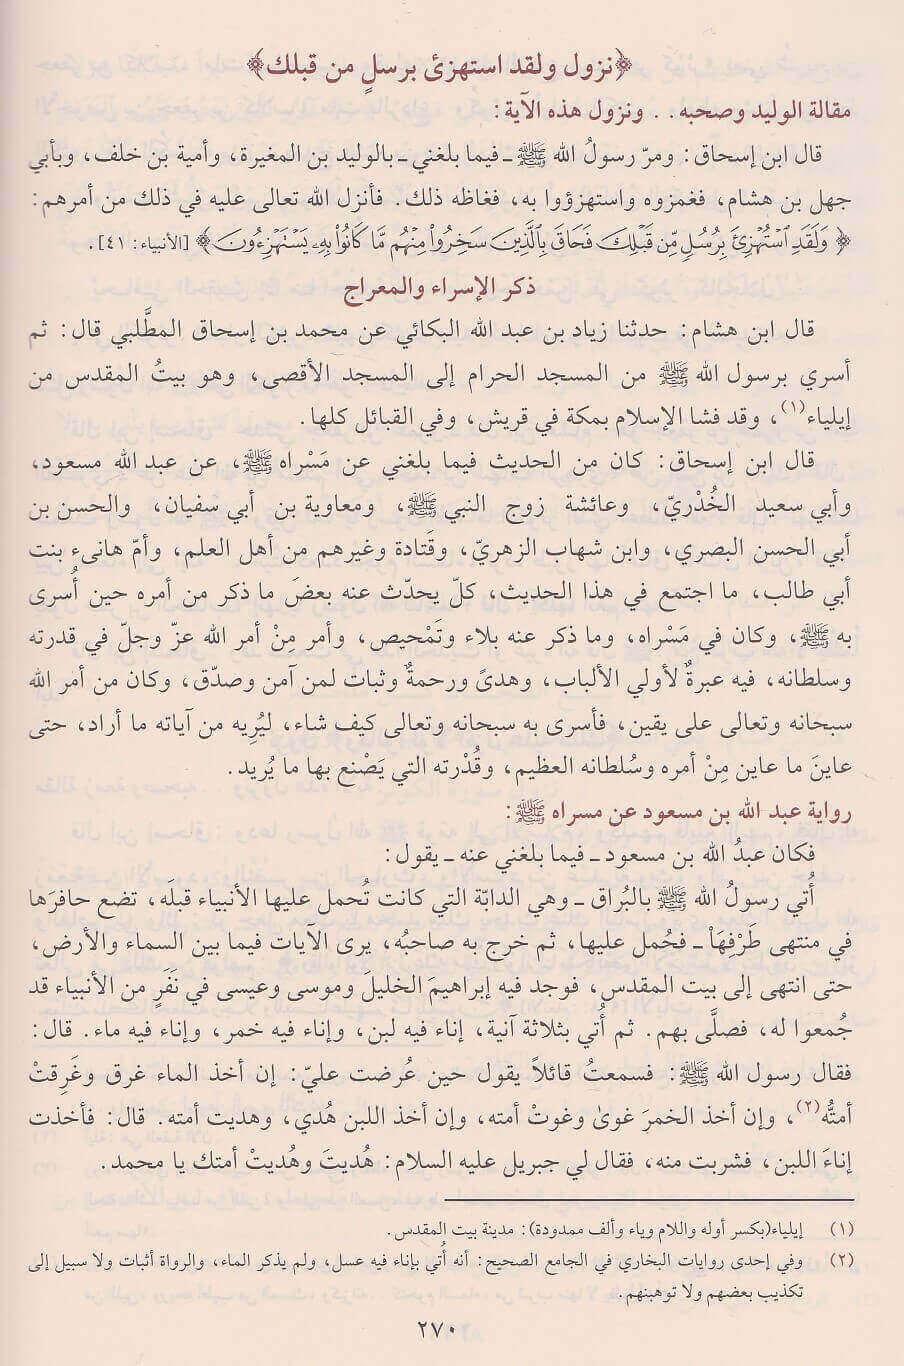 ﴿نزول ولقد استهزئ برسلٍ من قبلك﴾
مقالة الوليد وصحبه.. ونزول هذه الآية:
قال ابن إسحاق: ومرّ رسولُ الله ﷺ ـ فيما بلغني ـ بالوليد بن المغيرة، وأمية بن خلف، وبأبي
جهل بن هشام، فغمزوه واستهزؤوا به، فغاظه ذلك. فأنزل الله تعالى عليه في ذلك من أمرهم:
﴿وَلَقَدِ ٱسْتُهْزِئَ بِرُسُلٍ مِّن قَبْلِكَ فَحَاقَ بِٱلَّذِينَ سَخِرُوا۟ مِنْهُم مَّا كَانُوا۟ بِهِۦ يَسْتَهْزِءُونَ﴾ [الأنبياء: ٤١].
ذكر الإسراء والمعراج
قال ابن هشام: حدثنا زياد بن عبد الله البكائي عن محمد بن إسحاق المطَّلبي قال: ثم
أسري برسول الله ﷺ من المسجد الحرام إلى المسجد الأقصى، وهو بيتُ المقدس من
إيلياء(١)، وقد فشا الإسلام بمكة في قريش، وفي القبائل كلها.
قال ابن إسحاق: كان من الحديث فيما بلغني عن مَسْراه ﷺ، عن عبد الله مسعود،
وأبي سعيد الخُدْريّ، وعائشة زوج النبي ﷺ، ومعاوية بن أبي سفيان، والحسن بن
أبي الحسن البصري، وابن شهاب الزهريّ، وقَتادة وغيرهم من أهل العلم، وأمّ هانىء بنت
أبي طالب، ما اجتمع في هذا الحديث، كلّ يحدّث عنه بعضَ ما ذكر من أمره حين أُسرى
به ﷺ، وكان في مَسْراه، وما ذكر عنه بلاء وتَمْحيص، وأمر مِنْ أمر الله عزّ وجلّ في قدرته
وسلطانه، فيه عبرةٌ لأولي الألباب، وهدىً ورحمةٌ وثبات لمن آمن وصدّق، وكان من أمر الله
سبحانه وتعالى على يقين، فأسرى به سبحانه وتعالى كيف شاء، ليُرِيه من آياته ما أراد، حتى
عاينَ ما عاين مِنْ أمره وسُلطانه العظيم، وقُدْرته التي يَصْنع بها ما يُريد.
رواية عبد الله بن مسعود عن مسراه ﷺ:
فكان عبدُ الله بن مسعود ـ فيما بلغني عنه ـ يقول:
أُتي رسولُ الله ﷺ بالبُراق ـ وهي الدابّة التي كانت تُحمل عليها الأنبياء قبلَه، تضع حافرَها
في منتهى طَرْفِهَاْ ـ فحُمل عليها، ثم خرج به صاحبُه، يرى الآيات فيما بين السماء والأرض،
حتى انتهى إلى بيت المقدس، فوجد فيه إبراهيمَ الخليلَ وموسى وعيسى في نَفَرٍ من الأنبياء قد
جُمعوا له، فصلَّى بهم. ثم أُتي بثلاثة آنية، إناء فيه لبن، وإناء فيه خمر، وإناء فيه ماء. قال:
فقال رسول الله ﷺ: فسمعتُ قائلاً يقول حين عُرضت عليّ: إن أخذ الماء غرق وغَرِقتْ
أمتُّه(٢)، وإن أخذ الخمرَ غوىٰ وغوتْ أمته، وإن أخذ اللبن هُدي، وهديت أمته. قال: فأخذت
إناءَ اللبن، فشربت منه، فقال لي جبريل عليه السلام: هُديتَ وهُديتْ أمتك يا محمد.
(١) إيلياء(بكسر أوله واللام وياء وألف ممدودة): مدينة بيت المقدس.
(٢) وفي إحدى روايات البخاري في الجامع الصحيح: أنه أُتي بإناء فيه عسل، ولم يذكر الماء، والرواة أثبات ولا سبيل إلى
تكذيب بعضهم ولا توهينهم.
٢٧٠